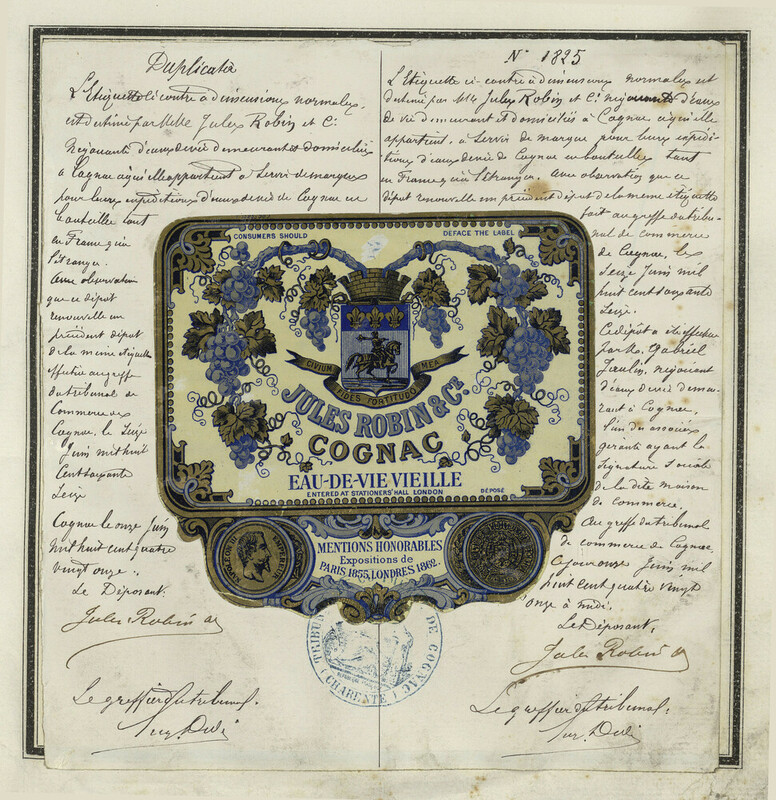 Duplicata
L'Etiquette ci contre a dimensions normales,
est destiné par MMrs Jules Robin et Cie
Négociants d'eaux de vie demeurant et domiciliés
à Cognac à qui elle appartient à servir de marque
pour leurs expéditions d'eaux de vie de Cognac en
bouteilles tant
en France qu'à
l'étranger.
Avec observation
que ce dépôt
renouvelle un
précédent dépôt
de la même étiquette
effectué au greffe
du tribunal de
Commerce de
Cognac, le Seize
Juin mil huit
Cent soixante
Seize
Cognac le onze Juin
mil huit cent quatre
vingt onze.
Le Déposant.
Jules Robin &
Le greffier du tribunal.
N° 1825
L'Etiquette ci-contre à dimensions normales est
destiné par MMrs Jules Robin et Cie négociants d'eaux
de vie demeurant et domiciliés à Cognac à qui elle
appartient, à servir de marque pour leurs expédi-
tions d'eaux de vie de Cognac en bouteilles tant
en France qu'à l'étranger. Avec observation que ce
dépôt renouvelle un précédent dépôt de la même étiquette
fait au greffe du tribu-
nal de commerce
de Cognac, le
Seize Juin mil
huit cent soixante
Seize.
Ce dépôt a été effectué
par Mr. Gabriel
négociant
d'eaux de vie demeu-
rant à Cognac,
l'un des associés
gérants ayant la
signature sociale
de la dite maison
de commerce.
Au greffe du tribunal
de commerce de Cognac,
ce jour onze Juin mil
huit cent quatre vingt
onze à midi.
Le Déposant,
Jules Robin &
Le greffier du tribunal.
CONSUMERS SHOULD DEFACE THE LABEL
CIVIUM MEA
FIDES FORTITUDO
JULES ROBIN & Cie
COGNAC
EAU-DE-VIE VIEILLE
ENTERED AT STATIONERS' HALL LONDON
DÉPOSÉ
NAPOLÉON III EMPEREUR
MENTIONS HONORABLES
Expositions de
PARIS 1855, LONDRES 1862.
TRIBUN DE COGNAC
(CHARENTE)